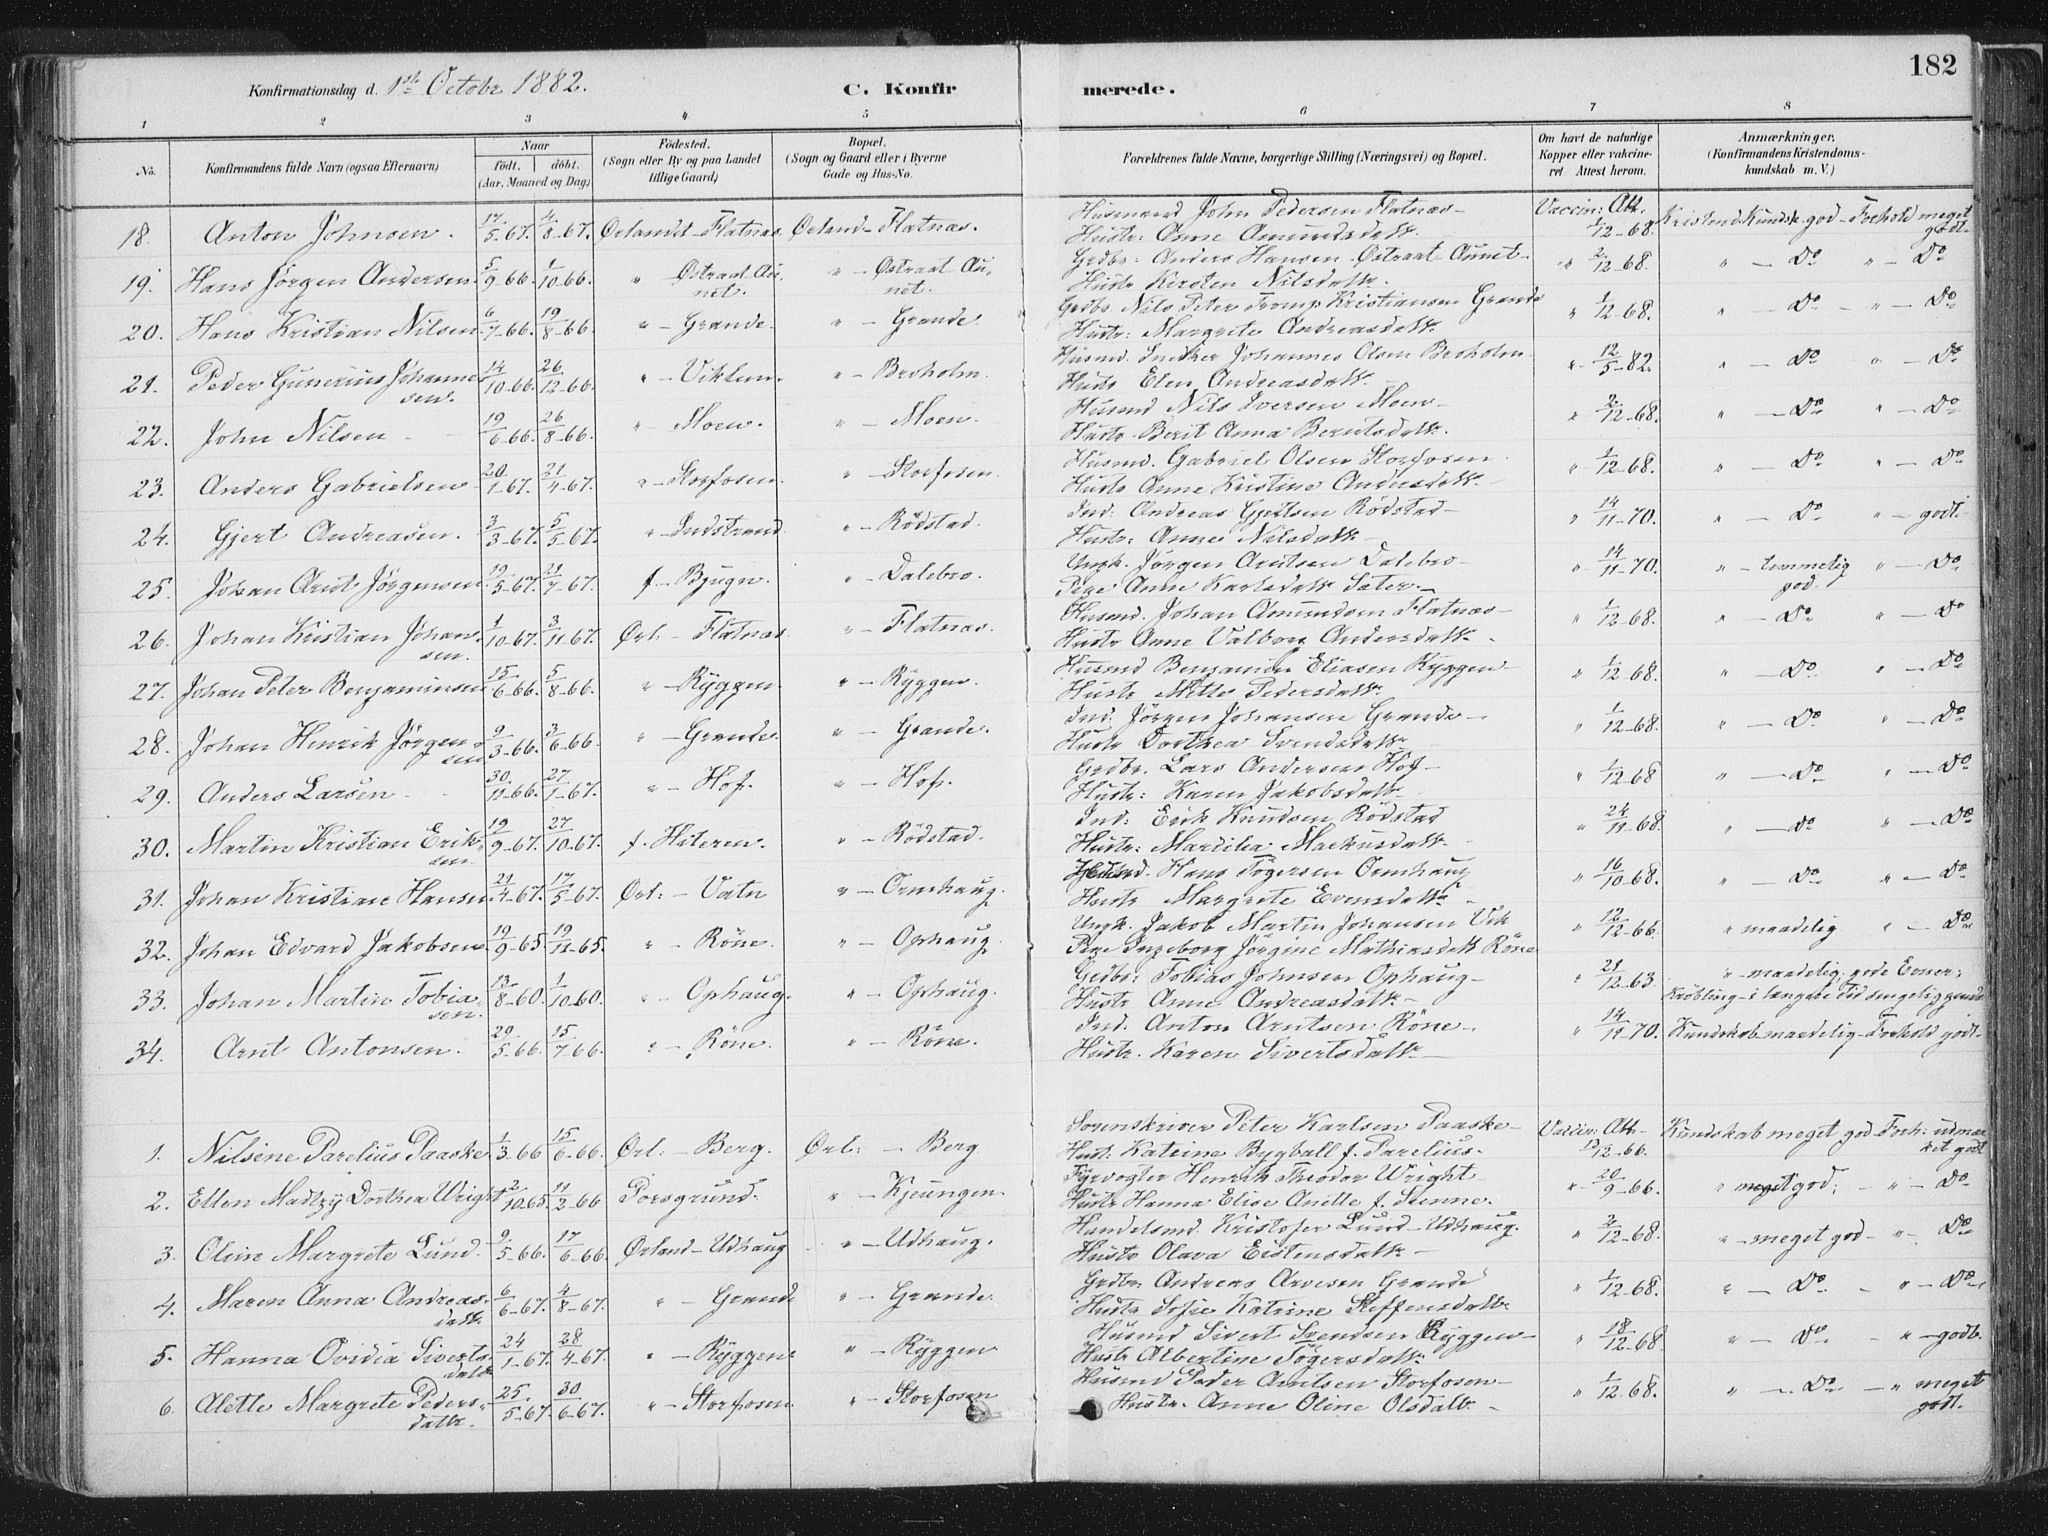 182
Konfirmationsdag d. 1ste Octobr 1882. C. Konfirmerede.
1 2 3 4 5 6 7 8
No. Konfirmandens fulde Navn (ogsaa Efternavn) Naar födt. döbt. (Aar, Maaned og Dag) Födested. (Sogn eller By og paa Landet tillige Gaard) Bopæl. (Sogn og Gaard eller i Byerne Gade og Hus-No. Forældrenes fulde Navne, borgerlige Stilling (Næringsvei) og Bopæl. Om havt de naturlige Kopper eller vakcineret Attest herom. Anmærkninger. (Konfirmandens Kristendomskundskab m. V.)
18. Anton Johnsen. 17/5-67. 4/8-67. Örlandet-Flatnæs. Örland-Flatnæs. Husmand John Pedersen Flatnæs- Vaccin: Att. 1/12-68. Kristend Kundsk. god-Forhold meget
Hustr: Anne Amundsdatt. godt.
19. Hans Jörgen Andersen. 5/9-66. 1/10-66. " Östraat Au- " - Östraat Au- Grdbr: Anders Hansen Östraat Aunet- " 2/12-68. " - Do " - Do
net. net. Hustr Kirsten Nilsdatt.
20. Hans Kristian Nilsen 6/7-66. 19/8-66. " - Grande. " - Grande. Grdbr Nils Peter Kristiansen Grande " 1/12-68. " - Do - " - Do
Hustr: Margrete Andreasdatt.
21. Peder Gunerius Johanne- 14/10-66. 26/12-66. " - Viklem. " - Broholm. Husmd. Snedker Johannes Olsen Broholm " 12/5-82. " - Do " - Do
sen. Hustr Elen Andreasdatt.
22. John Nilsen - 19/6-66. 26/8-66. " - Moen. " - Moen. Husmd Nils Iversen Moen- " 2/12-68. " - Do " - Do
Hustr Berit Anna Berntsdatt.
23. Anders Gabrielsen 20/1-67. 21/4-67. " - Storfosen. " - Storfosen. Husmd. Gabriel Olsen Storfosen " 1/12-68. " - Do " - Do
Hustr Anne Kristine Andersdatt.
24. Gjert Andreasen. 3/3-67. 5/5-67. " - Indstrand. " - Rödstad. Ind: Andreas Gjertsen Rödstad- " 14/11-70. " - Do " - godt.
Hustr: Anne Nilsdatt-
25. Johan Arnt Jörgensen. 19/5-67. 21/7-67. f. - Bjugn. " - Dalebro. Ungk. Jörgen Arntsen Dalebro- " 14/11-70. " - temmelig " - Do
Pige Anne Karlsdatt Sæter. god.
26. Johan Kristian Johan- 1/10-67. 3/11-67. Örl. - Flatnæs. " - Flatnæs. Husmd. Johan Amundsen Flatnæs- " 1/12-68. " - Do " - Do
sen. Hustr Anne Valborg Andersdatt.
27. Johan Peter Benjaminsen 15/6-66. 5/8-66. " - Ryggen. " - Ryggen. Husmd Benjamin Eliasen Ryggen- " 1/12-68. " - Do " - Do
Hustr Mette Pedersdatt.
28. Johan Henrik Jörgen- 9/3-66. 3/6-66. " - Grande. " - Grande. Ind: Jörgen Johansen Grande- " 1/12-68. " - Do " - Do
sen Hustr Dorthea Svendsdatt.
29. Anders Larsen 30/11-66. 27/1-67. " - Hof. " - Hof. Grdbr. Lars Andersen Hof- " 1/12-68 " - Do " - Do
Hustr: Karen Jakobsdatt.
30. Martin Kristian Erik- 19/9-67. 27/10-67. f. Hiteren. " - Rödstad. Ind: Erik Knudsen Rödstad " 24/11-68. " - Do " - Do
sen. Hustr: Mardilia Markusdatt.
31. Johan Kristian Hansen. 21/4-67. 17/5-67. Örl: - Vatn " - Ormhaug. Husmd. Hans Tögersen Ormhaug " 16/10-68. " - Do " - Do
Hustr Margrete Evensdatt.
32. Johan Edvard Jakobsen. 19/9-65. 19/11-65. " - Röne. " - Ophaug. Ungk. Jakob Martin Johansen Vik " 12/12-66. " maadelig " - Do
Pige Ingeborg Jörgine Mathiasdatt Röne
33. Johan Martin Tobia- 13/8-60. 1/10-60. " - Ophaug. " - Ophaug. Grdbr: Tobias Johnsen Ophaug- " 21/12-63. " - maadelig: gode Evner;
sen. Hustr Anne Andreasdatt- Kröbling-i længere Tid sengeliggende
34. Arnt Antonsen. 29/5-66. 15/7-66. " - Röne. " - Röne. Ind. Anton Arntsen Röne- " 14/11-70. Kundskab maadelig-Forhold godt.
Hustr. Karen Sivertsdatt-
1. Nilsine Parelius Paaske 1/3-66 15/6-66. Örl: - Berg. Örl: - Berg Sorenskriver Peter Karlsen Paaske- Vaccin: Att- 13/12-66. Kundskab meget god-Forh: udmær
Hust: Katrine Bygball f. Parelius. ket godt
2. Ellen Madlzy Dorthea Wright 2/10-65. 11/2-66 Porsgrund. " - Kjeungen. Fyrvogter Henrik Theodor Wright " 20/9-66. " god; - " - Do
Hustr Hanna Elise Anette f. Sunne.
3. Oline Margrete Lund. 9/5-66. 17/6-66. Örland-Udhaug " - Udhaug. Handelsmd. Kristofer Lund-Udhaug. " 2/12-68. " - meget god- " - Do
Hustr Olava Eistensdatt-
4. Maren Anna Andreas- 6/6-67. 4/8-67. " - Grande " - Grande. Grdbr: Andreas Arvesen Grande " 1/12-68. " - Do - " - Do
datt. Hustr Sofie Katrine Steffensdatt.
5. Hanna Ovidia Siverts- 24/1-67. 28/4-67. " - Ryggen. " - Ryggen Husmd Sivert Svendsen Ryggen- " 18/12-68. " - Do - " - godt.
datt. Hustr Albertine Tögersdatt.
6. Alette Margrete Peders- 25/5-67. 30/6-67. " - Storfosen. " - Storfosen Husmd Peder Arntsen Storfosen- " 1/12-68. " - Do - " meget
datt. Hustr. Anne Oline Olsdatt - godt.